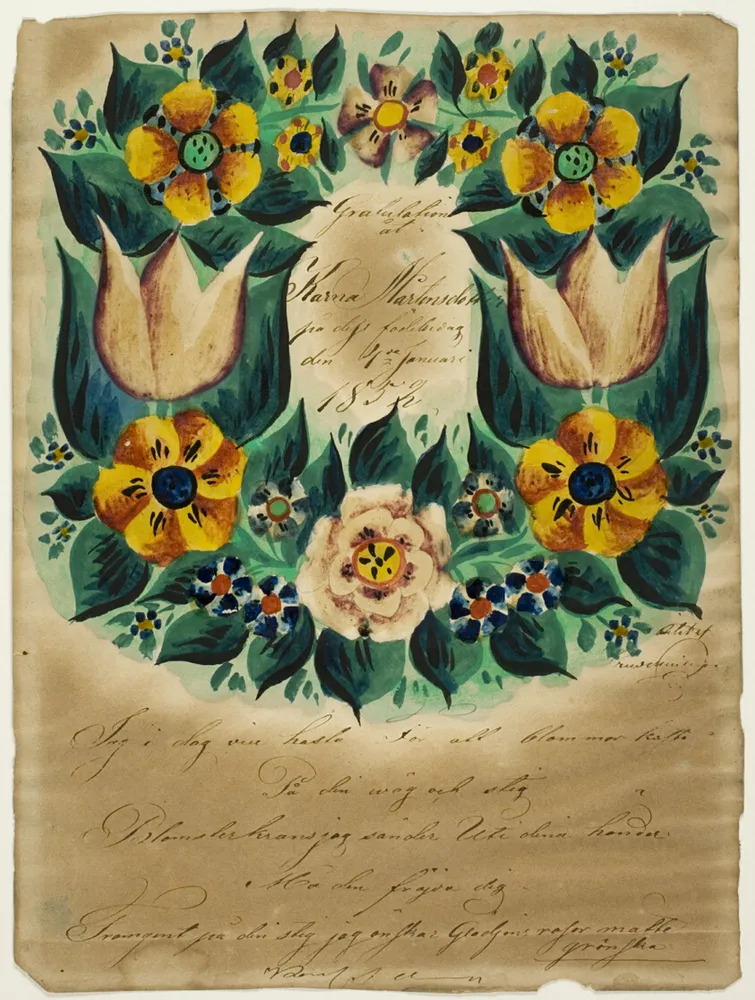 Gratulation
at
Karna Martinsdotter
på dess födelsedag
den 4de Januari
1852
Jag i dag vill hasta För att blommor kasta
På din wäg och stig
Blomsterkrans jag sänder Uti dina händer
Må den fröjda dig
Framgent på din stig jag önskar Glädjens rosor måtte
grönska